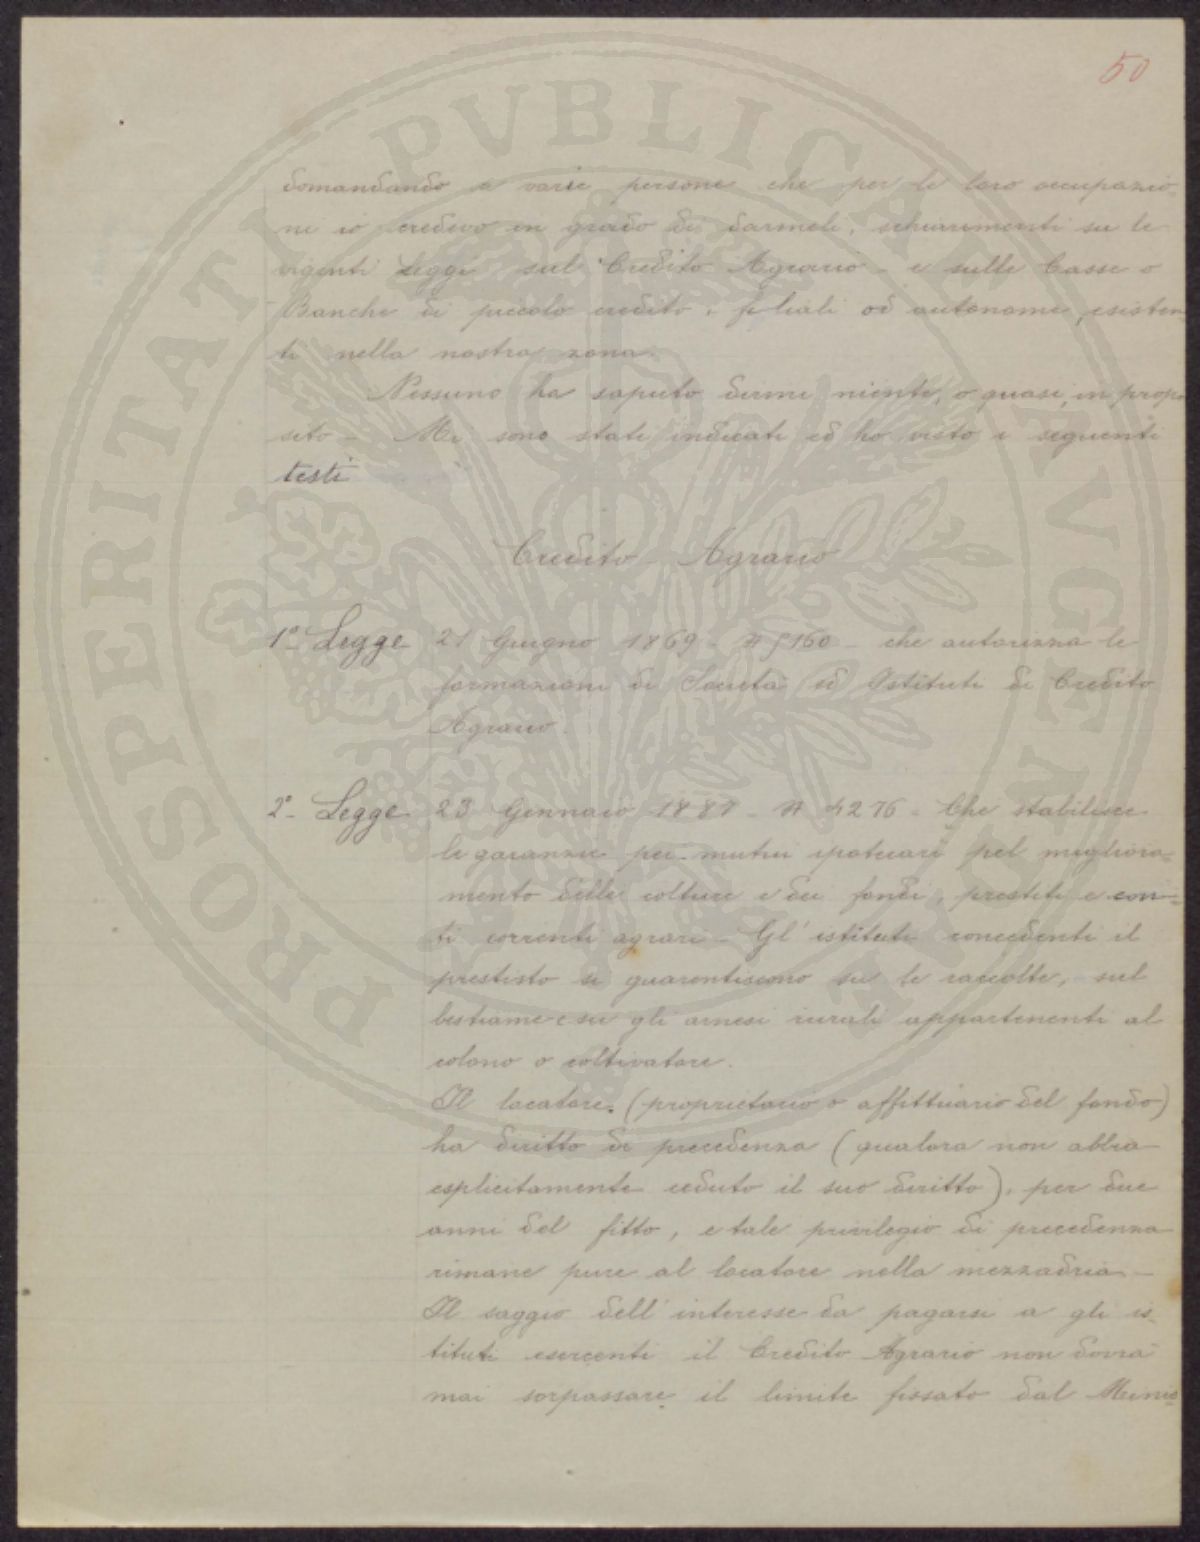 50
domandando a varie persone che per le loro occupazio-
ni io credevo in grado di darmeli, schiarimenti su le
vigenti Leggi sul Credito Agrario - e sulle Casse o
Banche di piccolo credito, filiali od autonome, esisten-
ti nella nostra zona.
Nessuno ha saputo dirmi niente, o quasi, in propo
sito - Mi sono stati indicati ed ho visto i seguenti
testi
Credito Agrario
1° Legge 21 Giugno 1869 - N 5160 - che autorizza le
formazioni di Società ed Istituti di Credito
Agrario.
2° - Legge 23 Gennaio 1887 - N 4276 - Che stabilisce
le garanzie per mutui ipotecari pel migliora-
mento delle colture e dei fondi, prestiti e con-
ti correnti agrari - Gl'istituti concedenti il
prestisto si guarentiscono su le raccolte, sul
bestiame e su gli arnesi rurali appartenenti al
colono o coltivatore.
Il locatore. (proprietario o affittuario del fondo)
ha diritto di precedenza (qualora non abbia
esplicitamente ceduto il suo diritto), per due
anni del fitto, e tale privilegio di precedenza
rimane pure al locatore nella mezzadria -
Il saggio dell'interesse da pagarsi a gli is-
tituti esercenti il Credito Agrario non dovrà
mai sorpassare il limite fissato dal Minis-
PROSPERITATI PVBLICAE AVGENDAE